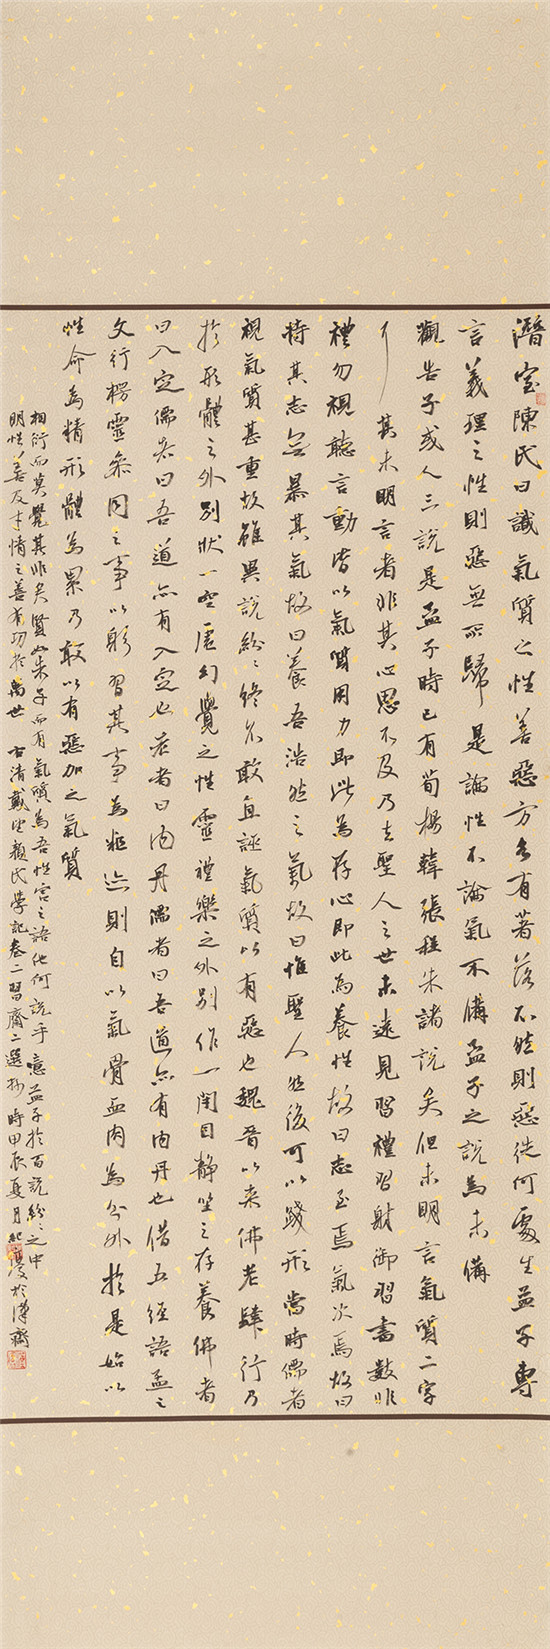 潛室陳氏曰識氣質之性善惡方各有著落不然則惡從何處生孟子專
言義理之性則惡無所歸是論性不論氣不備孟子之說為未備
觀告子或人三說是孟子時已有荀揚韓張程朱諸說矣但未明言氣質二字
耳其未明言者非其心思不及乃去聖人之世未遠見習禮習射御習書數非
禮勿視聽言動皆以氣質用力即此為存心即此為養性故曰志至焉氣次焉故曰
持其志無暴其氣故曰養吾浩然之氣故曰惟聖人然後可以踐形當時儒者
視氣質甚重故雖異說紛紛終不敢直誣氣質以有惡也魏晉以來佛老肆行乃
於形體之外別狀一空虛幻覺之性靈禮樂之外別作一閉目靜坐之存養佛者
曰入定儒者曰吾道亦有入定也老者曰內丹儒者曰吾道亦有內丹也借五經語孟之
文行楞靈參同之事以躬習其事為粗跡則自以氣骨血肉為分外於是始以
性命為精形體為累乃敢以有惡加之氣質
相衍而莫覺其非矣賢如朱子而有氣質為吾性害之語他何說乎噫孟子於百說紛紛之中
明性善及才情之善有功於萬世 右清戴望顏氏學記卷二習齋二選抄時甲辰夏月於漢齋